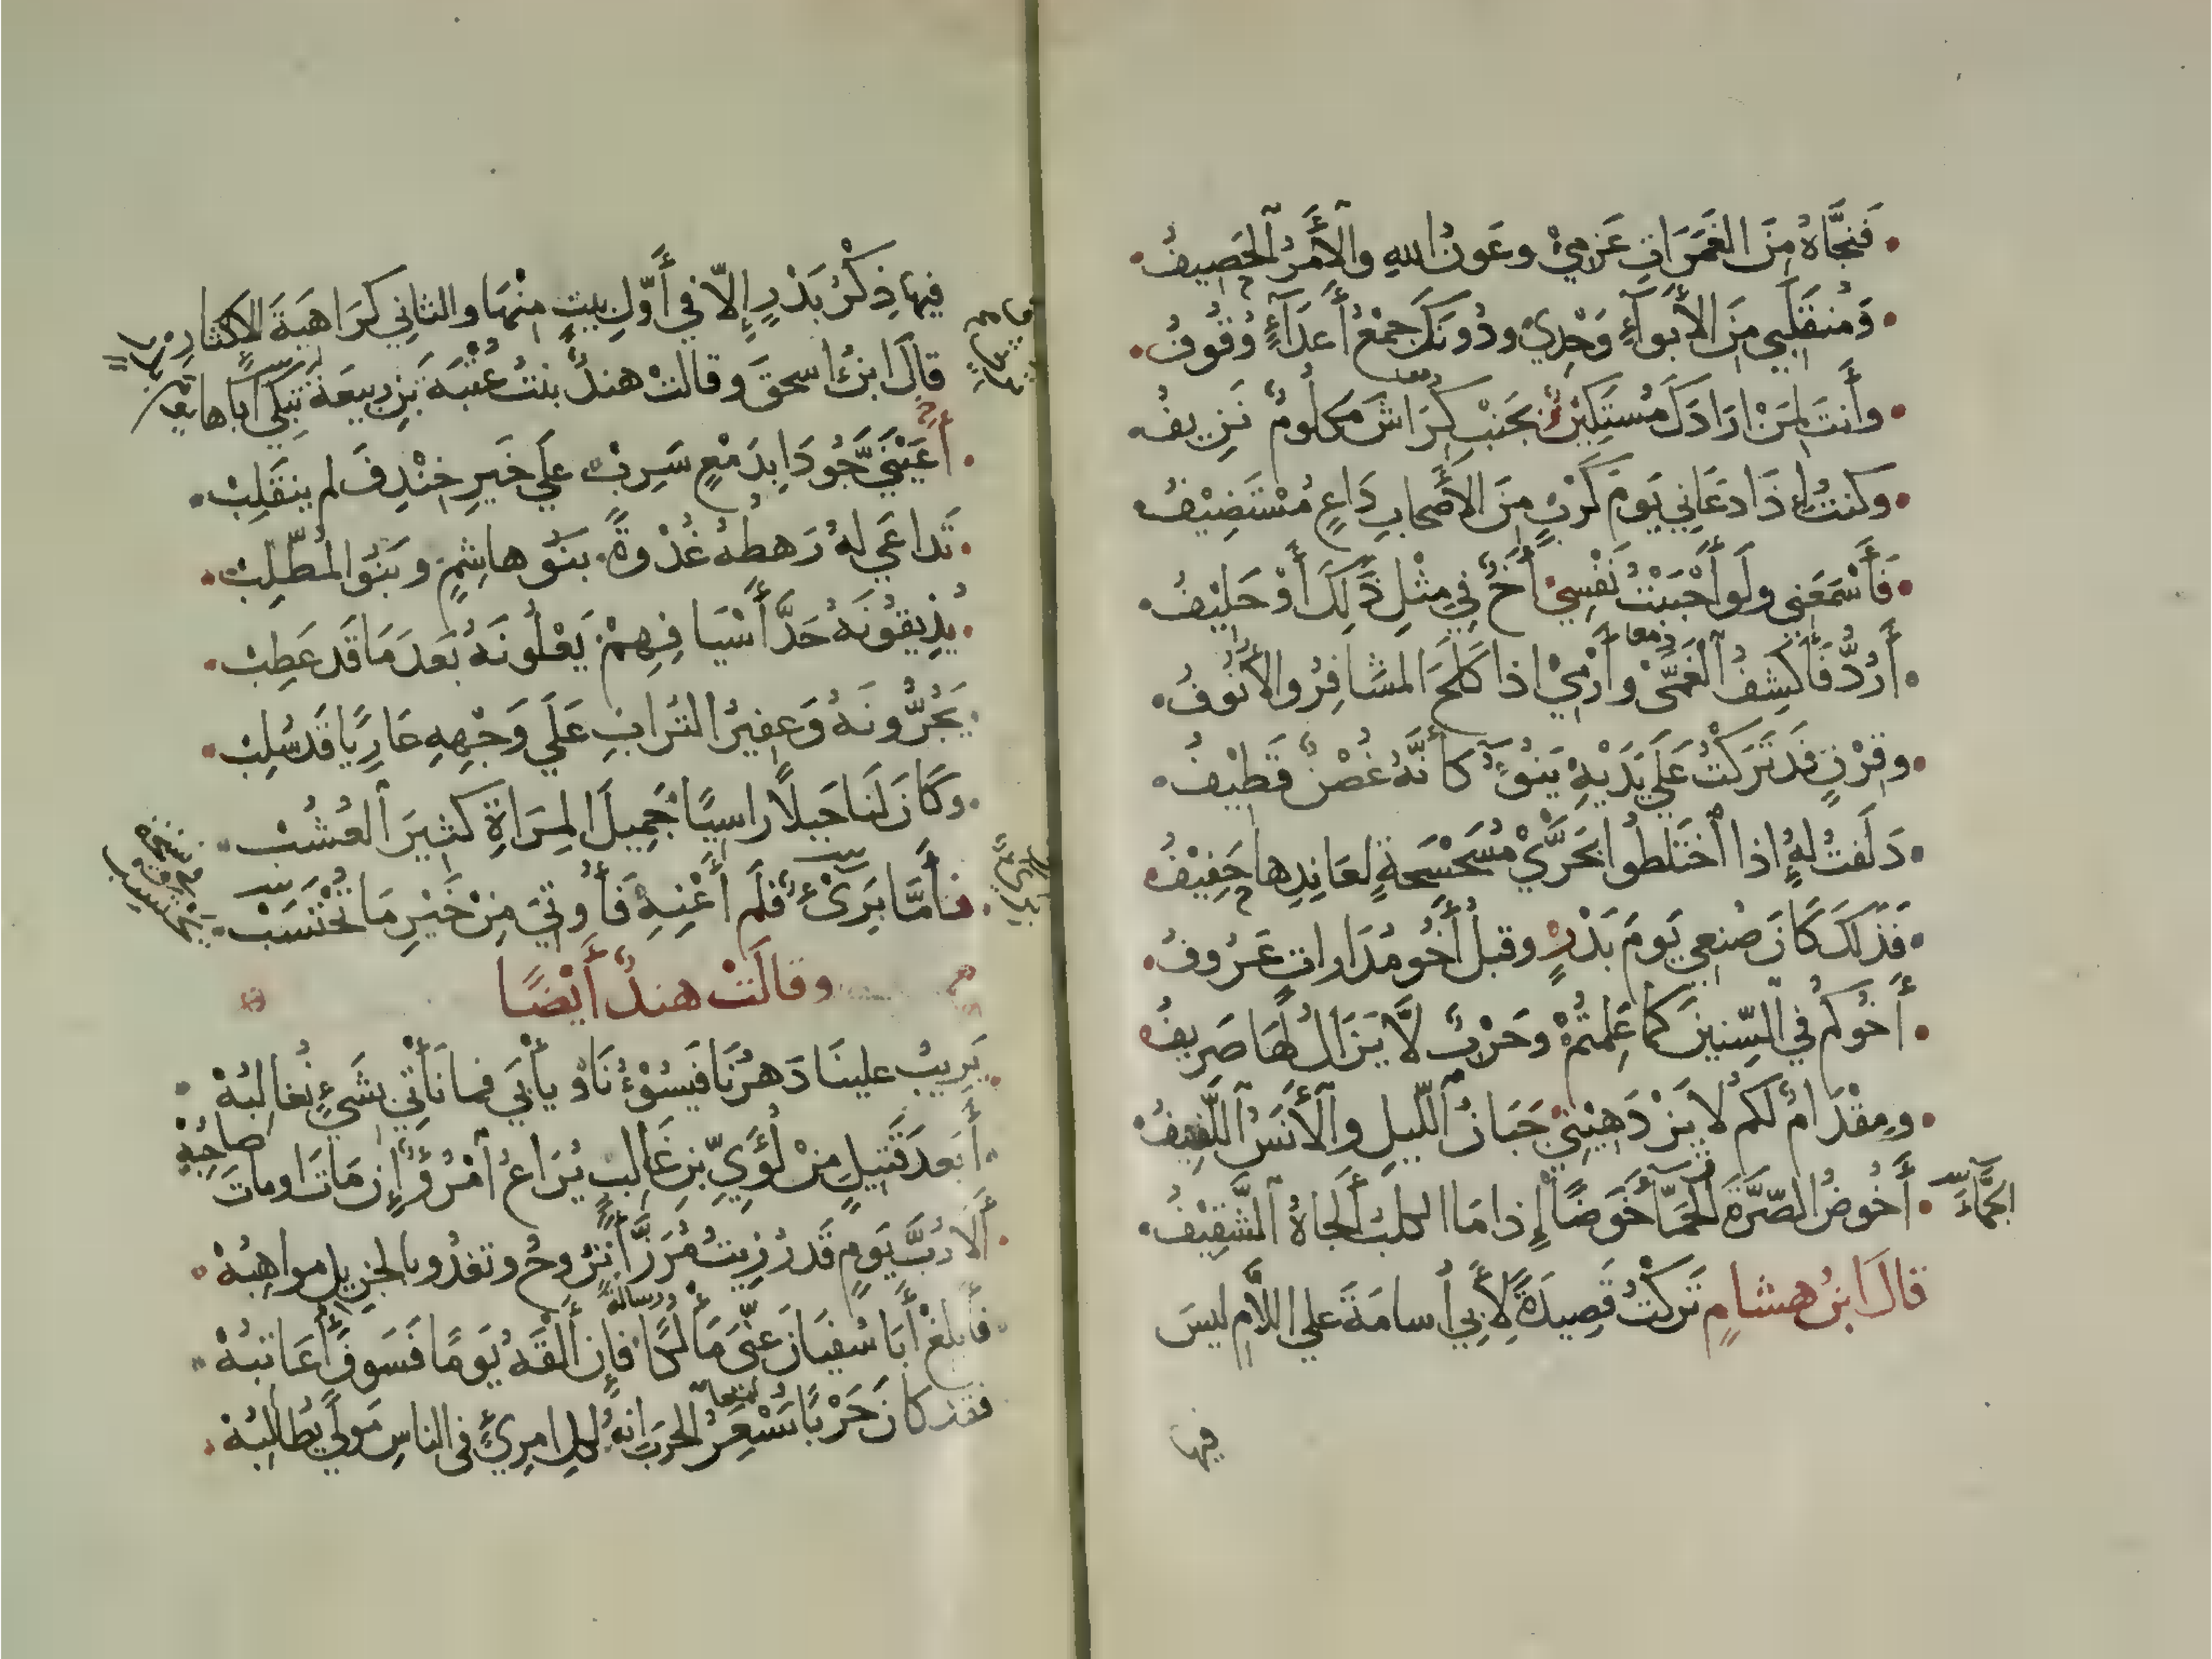 فَنَجَّاهُ مِنَ الغَمَرَاتِ عَزْمِيْ وعَونُ اللهِ والأَمْرُ الحَصِيفُ
وَمُنقَلَبِي مِنَ الأَبوَآءِ وَحْدِيْ ودُونَكَ جَمْعُ أَعدَآءٍ وُقُوفُ
وأَنتَ لِمَنْ ارَادَكَ مُستَكِيْنٌ بجَنبِ كِرَاشَ مَكلُومٌ نَزِيفُ
معا
وكنتُ إِذَا دعَانِي يَومَ كَرْبٍ مِنَ الأَصْحابِ دَاعٍ مُسْتَضِيْفُ
فَأَسْمَعَنِي ولَو أَحْبَبْتُ نَفْسِيْ أَخٌ فِي مِثْلِ ذَلِكَ أَوْ حَلِيْفُ
أَرُدُّ فَأَكشِفُ الغُمَّى وأَرْمِيْ اذا كَلَحَ المشَافِرُ والأُنُوفُ
معا
وقِرْنٍ قَدْ تَرَكْتُ عَلَي يَدَيْهِ يَنُوءُ كأَنَّهُ غُصْنٌ قَطِيْفُ
دَلَفتُ لهُ إذا اختَلطُوا بحَرَّيْ مُسَحْسَحةٍ لعَانِدِها حَفِيْفُ
فَذَلكَ كَانَ صُنعِي يَومَ بَدْرٍ وقبلُ أَخُو مُدَاراتٍ عَرُوفُ
أَخُوكُم في السِّنِينَ كَما عَلِمتُمْ وحَرْبٌ لَّا يَزَالُ لهَا صَرِيفُ
ومِقْدَامٌ لكُم لا يَزْدَهِيْنِيْ جَنَانُ اللَّيلِ والأَنَسُ اللَّفِيفُ
أَخُوضُ الصَّرَّةَ الحَمَّآ خَوضًا إِذا مَا الكلبُ أَلجاهُ الشَّفِيْفُ
الجَمَّاءَ
قالَ ابنُ هشامٍ تَركْتُ قَصِيدَةً لأَبِي أسامَةَ علي اللَّامِ ليسَ
فيها
فيها ذِكْرُ بَدْرٍ إِلاّ في أَوَّلِ بيتٍ مِنْهَا والثاني كَرَاهَيةَ الإكثارِ
قالَ ابنُ اسحقَ وقالتْ هندٌ بنتُ عُتْبَةَ بنِ ربِيعَةَ تَبكِي أَباها
أَعَيْنَيَّ جُودَا بِدَمْعٍ سَرِبْ علَي خَيرِ خِنْدِفَ لم ينقَلِبْ
تَداعَي لهُ رَهطُهُ غُدْوةً بنُو هاشِمٍ وبَنُو المُطَّلِبْ
يُذِيقُونَهُ حَدَّ أَسْيَافِهِمْ يَعْلُونَهُ بَعدَ مَا قَد عَطِبْ
يَجُرُّونَهُ وَعفِيرُ التُرَابِ عَلَي وَجْهِهِ عَارِيًا قَد سُلِبْ
وكَانَ لنَا جَبلًا راسِيًا جَمِيلَ المِرَاةِ كثِيرَ العُشُبْ
فأَمَّا بُرَيٌّ فلَم أَعْنِهِ فَأُوتِيَ مِنْ خَيْرِ مَا تَحْتَسَبْ
نسخة
وقالَتْ هندٌ أَيْضًا
يَرِيبُ علينَا دَهرُنَا فيَسُوْءُنَا ويأبَي فما نَأْتِي بشَيْءٍ نُغالبُهْ
أبَعدَ قَتيلٍ مِنْ لُؤَيِّ بنِ غَالبٍ يُرَاعُ امْرُؤٌ إن مَاتَ اوماتَ صاحِبُهْ
أَلا رُبَّ يَومٍ قَد رُزِيتُ مُرَزَّأً تَرُوحُ وتغدُو بالجَزِيلِ مواهِبُهْ
فأَبلغْ أَبَا سُفيَانَ عَنّي مَألُكًا فإن أَلْقَهُ يَومًا فسَوفَ أُعَاتبُهْ
رسالة
فقد كانَ حَرْبًا تَسْعَرُ الحَربَ إِنهُ لكلِ امرِئٍ فى الناسِ مَوليً يُطالبُهْ